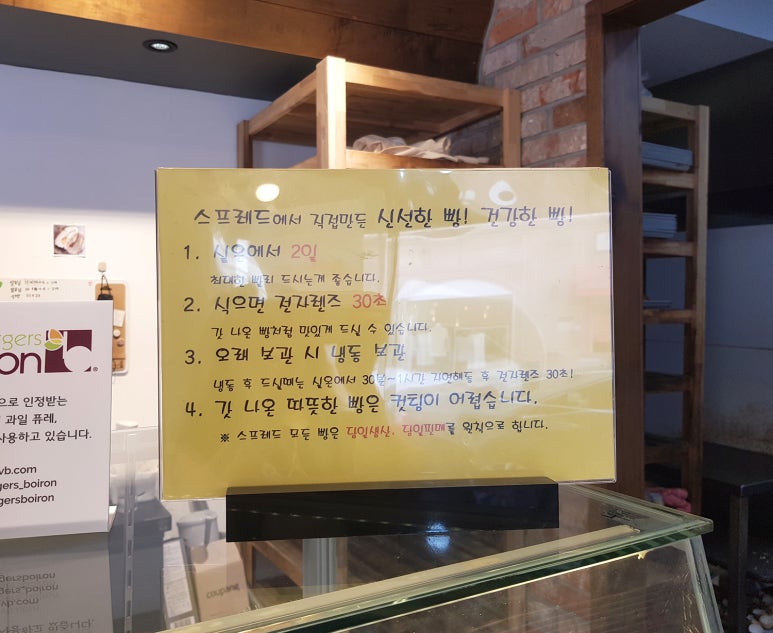 스프레드에서 직접만든 신선한 빵! 건강한 빵!
1. 실온에서 2일
최대한 빨리 드시는게 좋습니다.
2. 식으면 전자렌즈 30초
갓 나온 빵처럼 맛있게 드실 수 있습니다.
3. 오래 보관 시 냉동 보관
냉동 후 드실때는 실온에서 30분~1시간 자연해동 후 전자렌즈 30초!
4. 갓 나온 따뜻한 빵은 컷팅이 어렵습니다.
※ 스프레드 모든 빵은 당일생산, 당일판매를 원칙으로 합니다.
rgers
on b ®
으로 인정받는
과일 퓨레,
사용하고 있습니다.
vb.com
gers_boiron
gersboiron
coupang